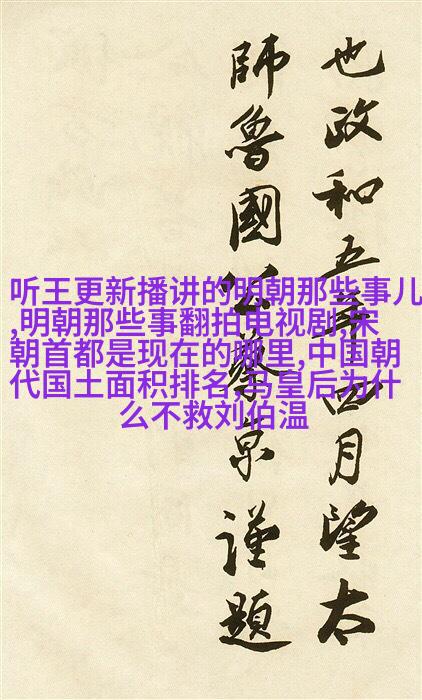 也政和五年四月望太
師魯國公蔡京謹題
听王更新播讲的明朝那些事儿
,明朝那些事翻拍电视剧,宋
朝首都是现在的哪里,中国朝
代国土面积排名,马皇后为什
么不救刘伯温